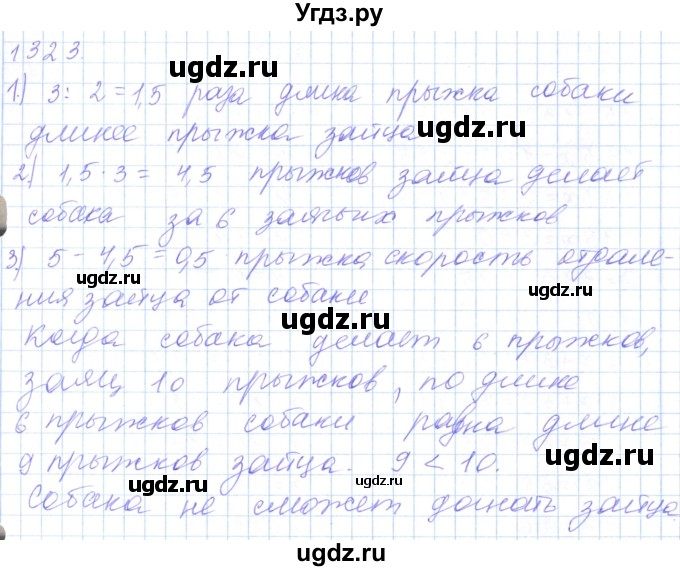 Угдз.ру
1323.
ugdz.ru ugdz.ru
1) 3 : 2 = 1,5 раза длина прыжка собаки
длинее прыжка зайца
ugdz.ru
2) 1,5 · 3 = 4,5 прыжков зайца делает
собака за 6 заячьих прыжков
ugdz.ru
3) 5 - 4,5 = 0,5 прыжка скорость отдале-
ugdz.ru ugdz.ru
ния зайца от собаки
ugdz.ru
Когда собака делает 6 прыжков,
заяц 10 прыжков, по длине
6 прыжков собаки равна длине
ugdz.ru
9 прыжков зайца. 9 < 10.
ugdz.ru ugdz.ru
Собака не сможет догнать зайца
ugdz.ru